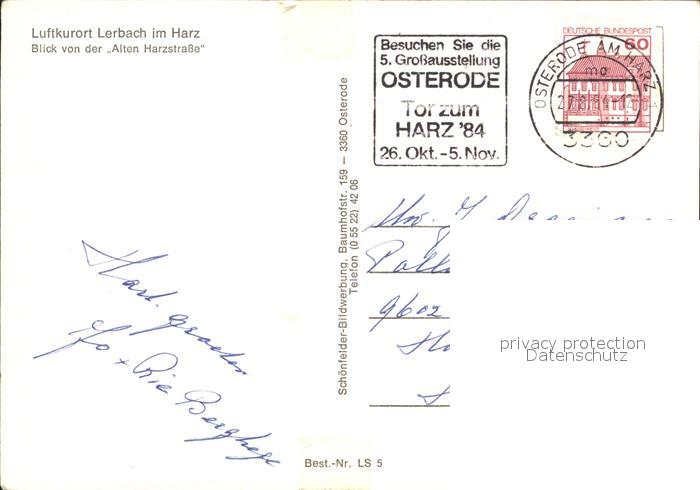 Luftkurort Lerbach im Harz
Blick von der „Alten Harzstraße“
Besuchen Sie die
5. Großausstellung
OSTERODE
Tor zum
HARZ '84
26. Okt. - 5. Nov.
DEUTSCHE BUNDESPOST
60
OSTERODE AM HARZ
mg
3360
Schönfelder-Bildwerbung, Baumhofstr. 159 — 3360 Osterode
Telefon (0 55 22) 42 06
9602
Hart. groeten
Jo + Ria
privacy protection
Datenschutz
Best.-Nr. LS 5